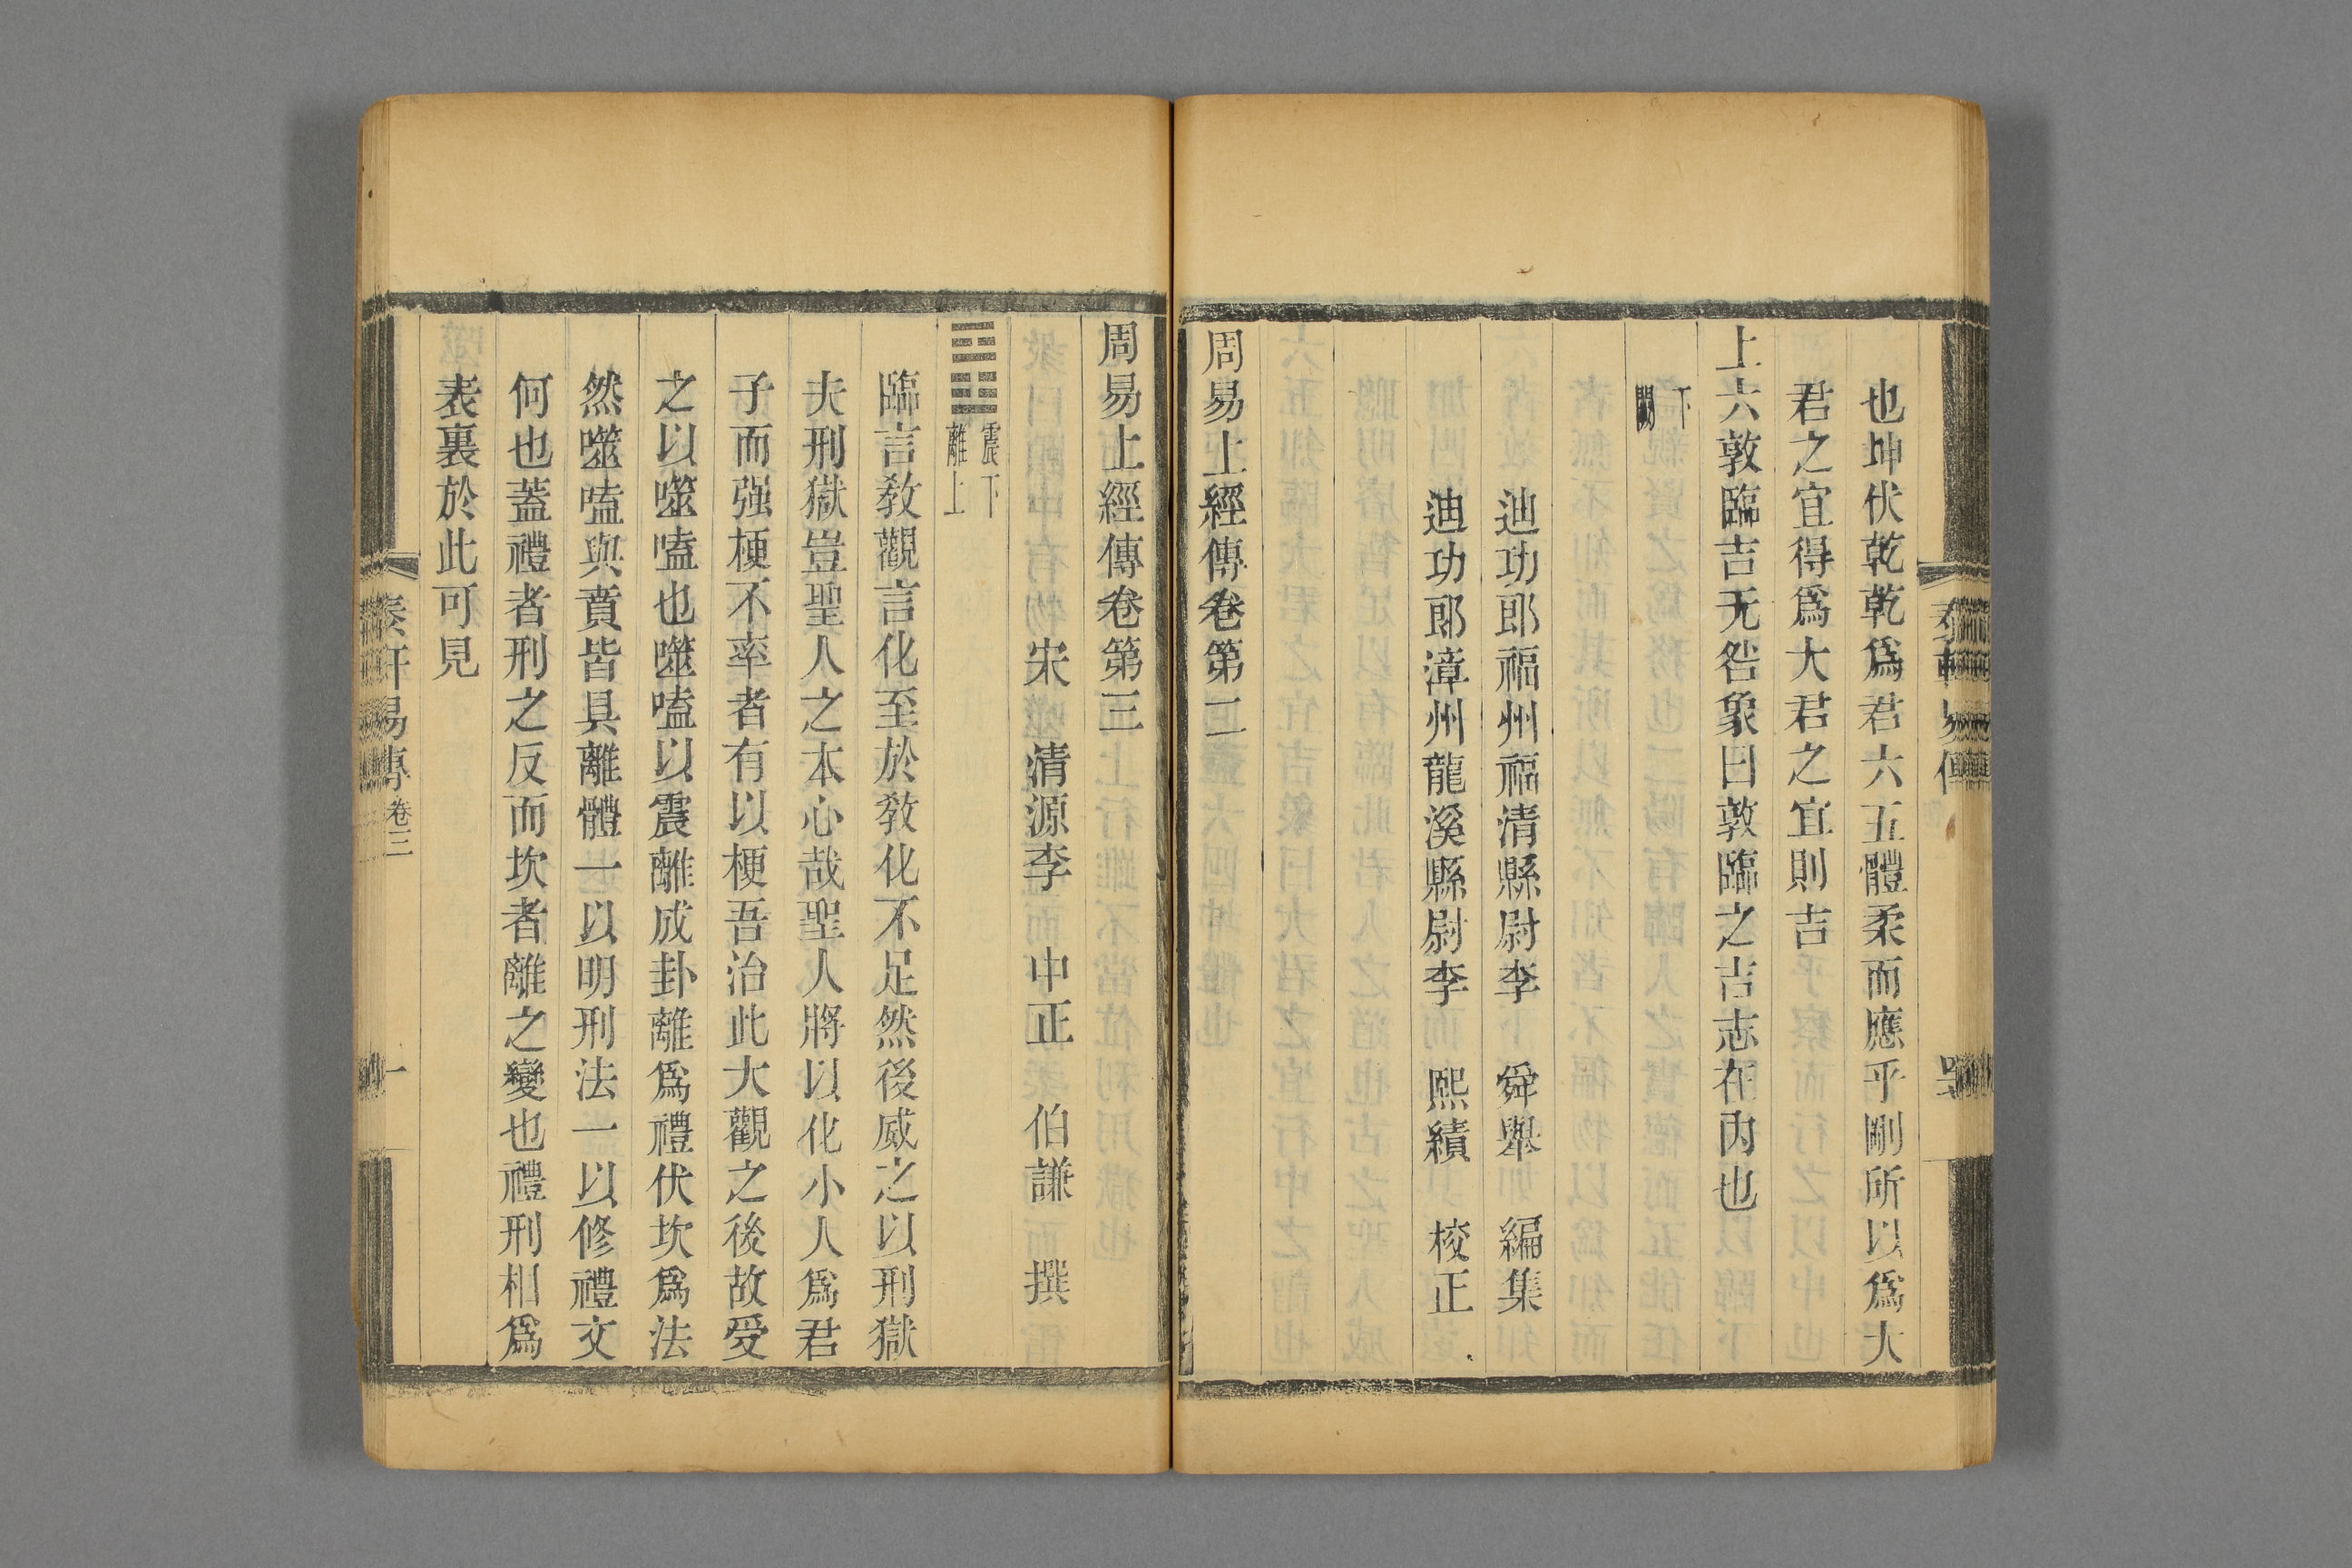 也坤伏乾乾爲君六五體柔而應乎剛所以爲大
君之宜得爲大君之宜則吉
上六敦臨吉无咎象曰敦臨之吉志在內也
下闕
迪功郎福州福清縣尉李 舜舉 編集
迪功郎漳州龍溪縣尉李 熙績 校正
周易上經傳卷第二
周易上經傳卷第三
宋 清源李 中正 伯謙 撰
震下
離上
臨言敎觀言化至於敎化不足然後威之以刑獄
夫刑獄豈聖人之本心哉聖人將以化小人爲君
子而强梗不率者有以梗吾治此大觀之後故受
之以噬嗑也噬嗑以震離成卦離爲禮伏坎爲法
然噬嗑與賁皆具離體一以明刑法一以修禮文
何也蓋禮者刑之反而坎者離之變也禮刑相爲
表裏於此可見
泰軒易傳 卷三 一